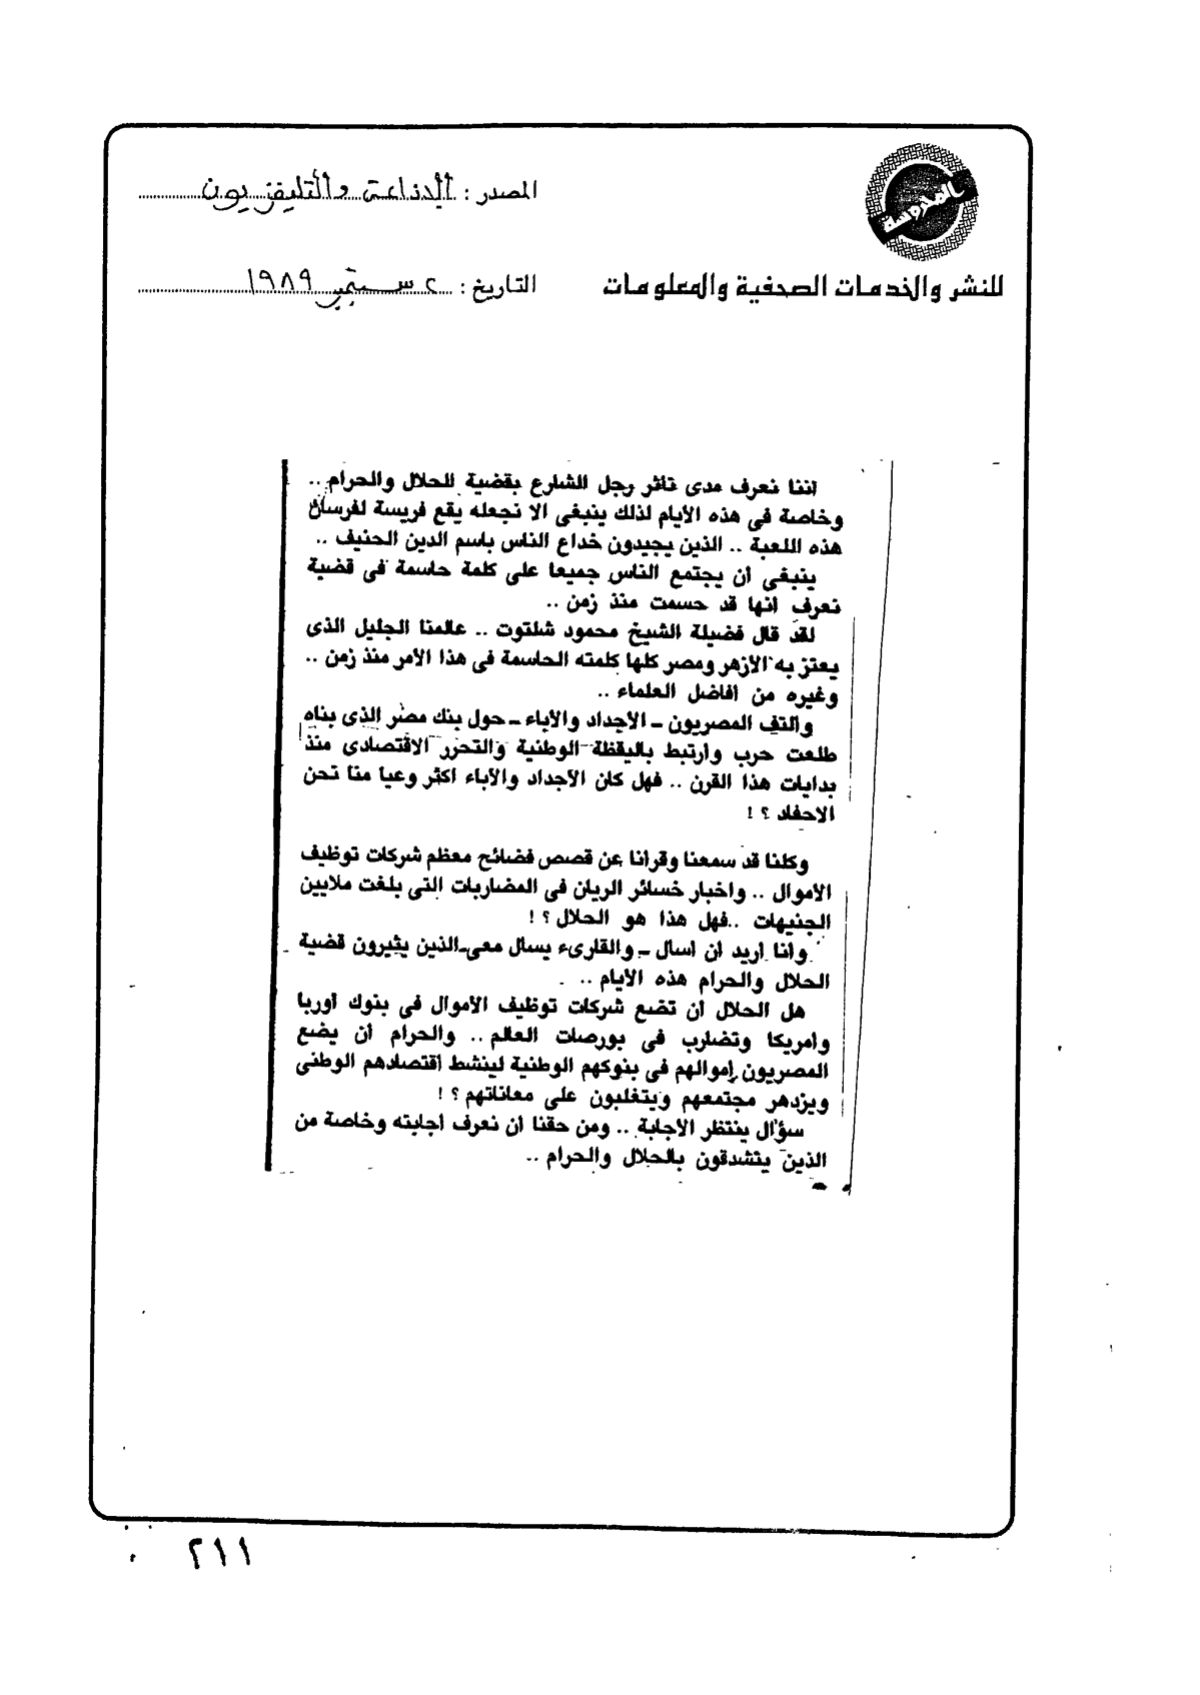 المحروسة
للنشر والخدمات الصحفية والمعلومات
المصدر : الإذاعة والتليفزيون
التاريخ : ٢ سبتمبر ١٩٨٩
اننا نعرف مدى تاثر رجل الشارع بقضية الحلال والحرام ..
وخاصة فى هذه الأيام لذلك ينبغى الا نجعله يقع فريسة لفرسان
هذه اللعبة .. الذين يجيدون خداع الناس باسم الدين الحنيف ..
ينبغى أن يجتمع الناس جميعا على كلمة حاسمة فى قضية
نعرف انها قد حسمت منذ زمن ..
لقد قال فضيلة الشيخ محمود شلتوت .. عالمنا الجليل الذى
يعتز به الأزهر ومصر كلها كلمته الحاسمة فى هذا الأمر منذ زمن ..
وغيره من افاضل العلماء ..
والتف المصريون - الأجداد والآباء - حول بنك مصر الذى بناه
طلعت حرب وارتبط باليقظة الوطنية والتحرر الاقتصادى منذ
بدايات هذا القرن .. فهل كان الأجداد والآباء اكثر وعيا منا نحن
الاحفاد ؟ !
وكلنا قد سمعنا وقرانا عن قصص فضائح معظم شركات توظيف
الأموال .. واخبار خسائر الريان فى المضاربات التى بلغت ملايين
الجنيهات .. فهل هذا هو الحلال ؟ !
وانا اريد ان اسال - والقارىء يسال معى - الذين يثيرون قضية
الحلال والحرام هذه الأيام ..
هل الحلال أن تضع شركات توظيف الأموال فى بنوك اوربا
وامريكا وتضارب فى بورصات العالم .. والحرام أن يضع
المصريون اموالهم فى بنوكهم الوطنية لينشط اقتصادهم الوطنى
ويزدهر مجتمعهم ويتغلبون على معاناتهم ؟ !
سؤال ينتظر الاجابة .. ومن حقنا ان نعرف اجابته وخاصة من
الذين يتشدقون بالحلال والحرام ..
٢١١